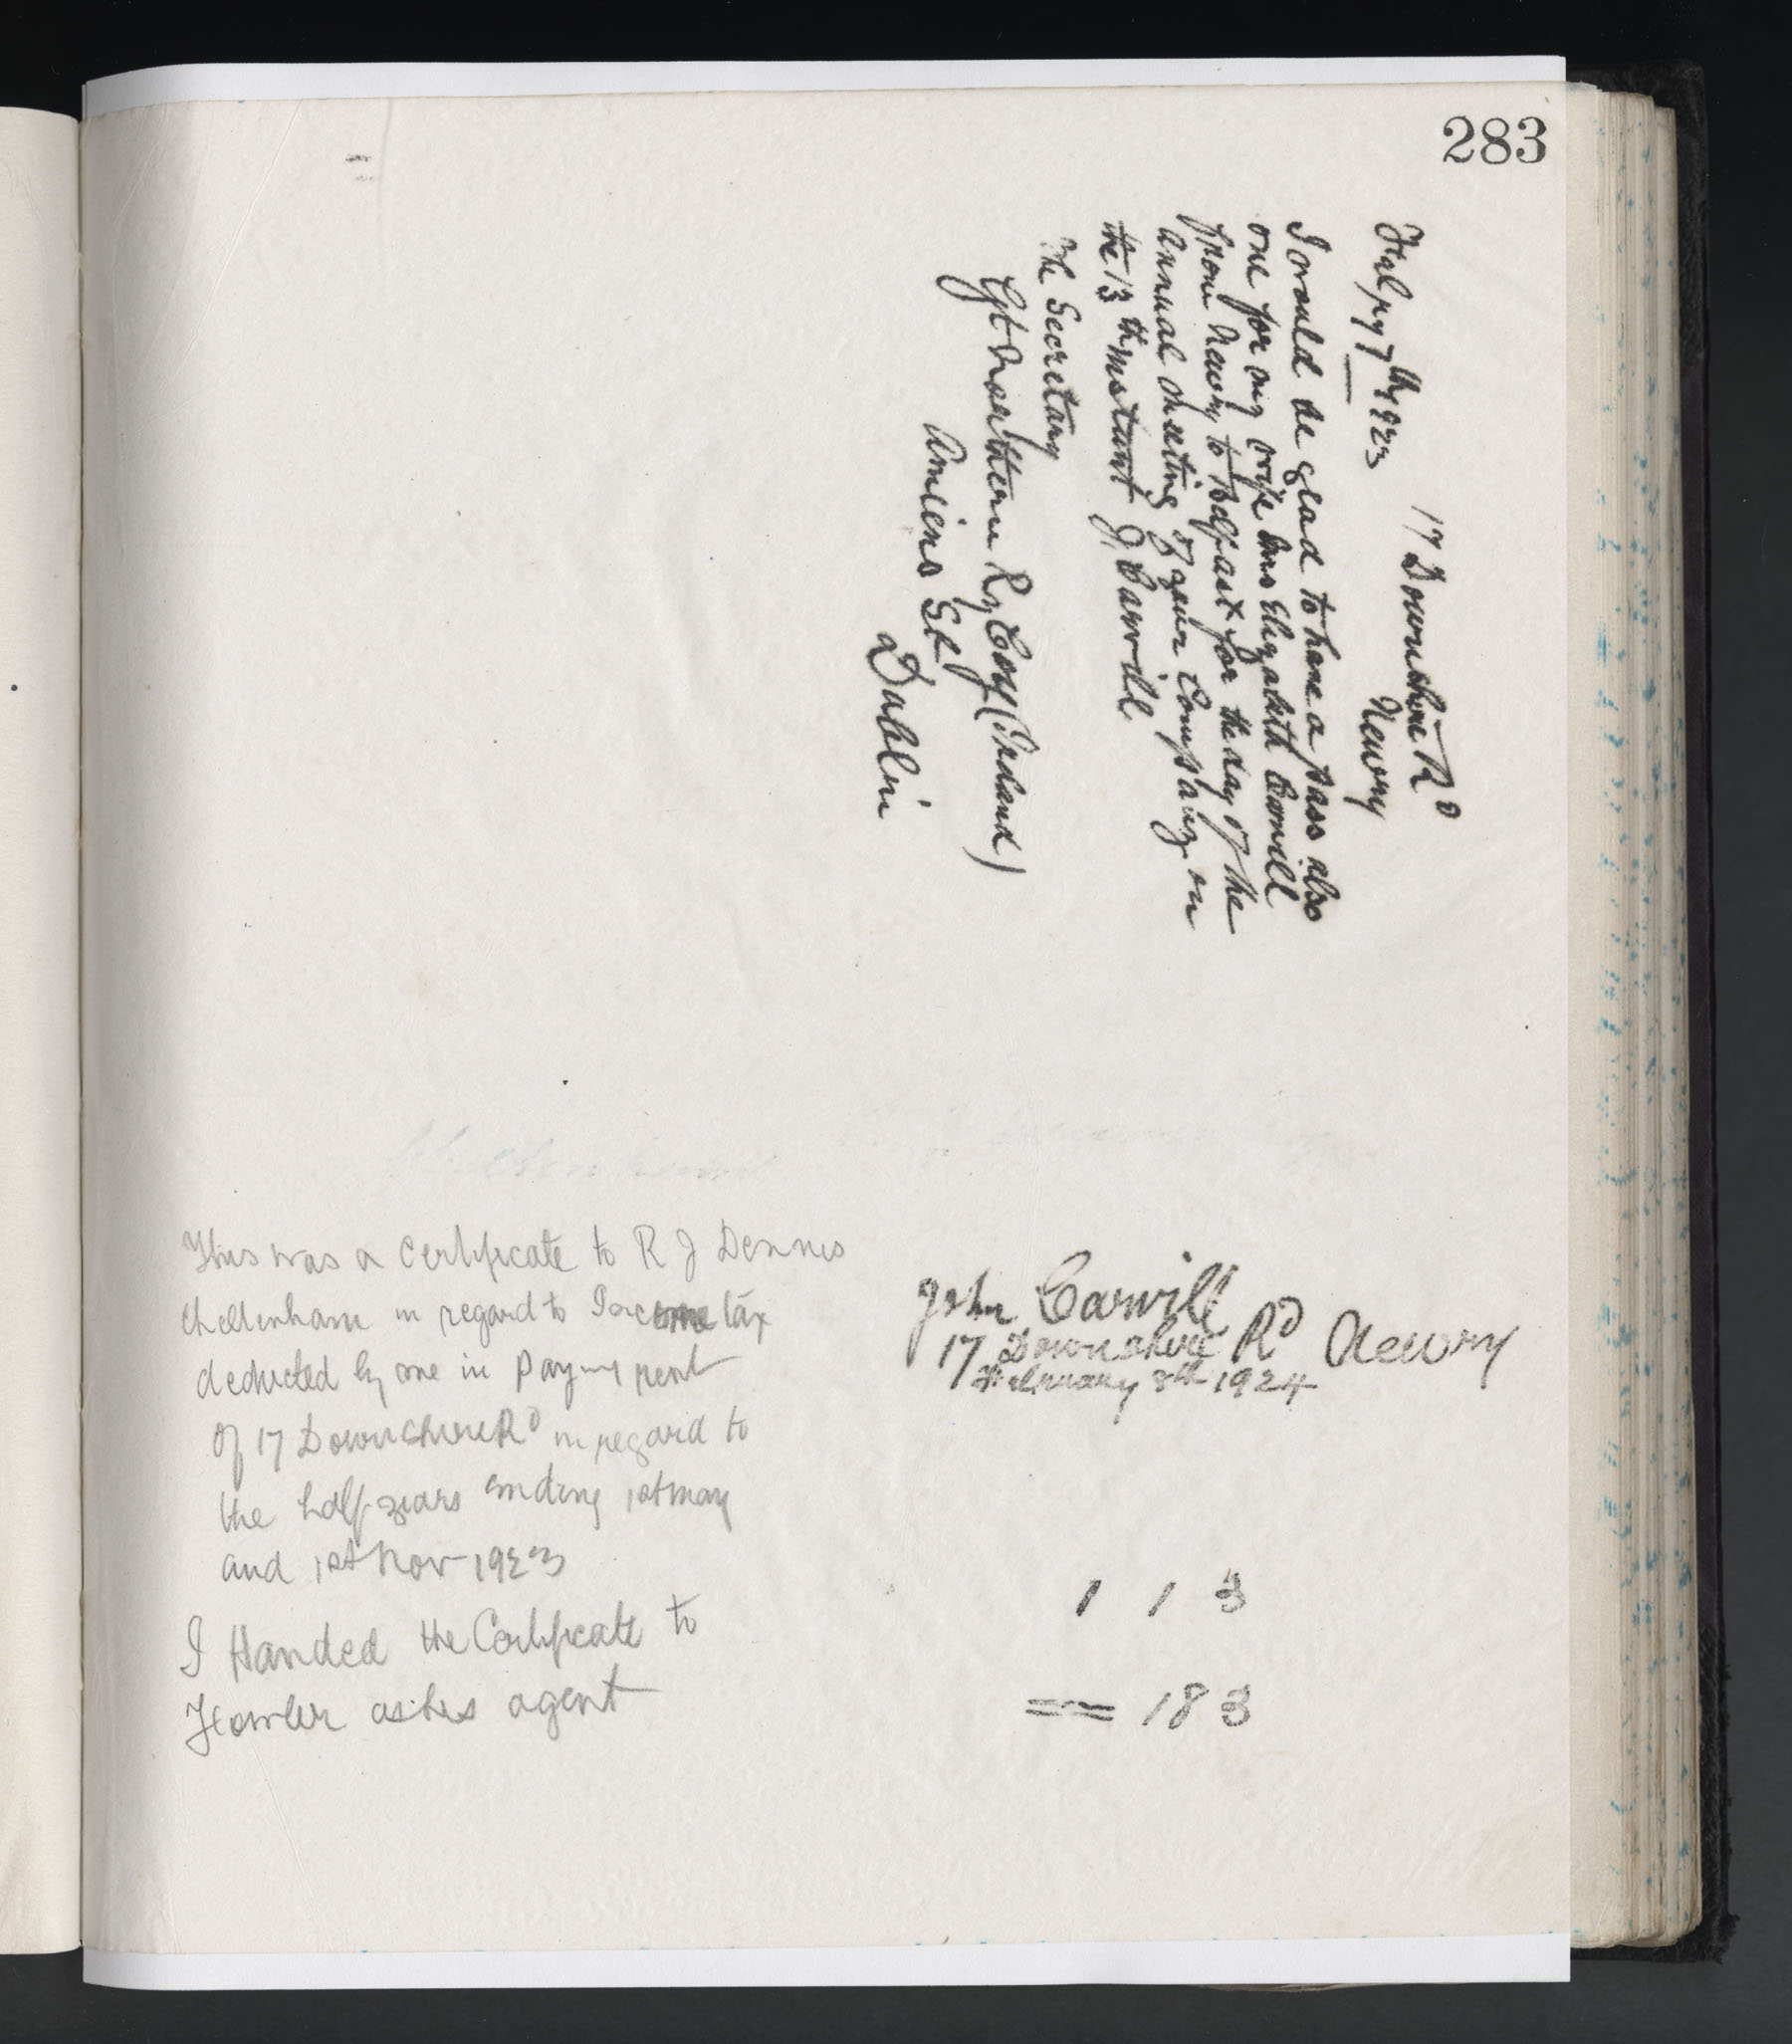 283
17 Downshire Rd
Newry
Feby 7th 1923
I would be glad to have a pass also
one for my wife Mrs Elizabeth Carvill
from Newry to Belfast for the day of the
annual Meeting of your Company on
the 13th instant J. Carvill
The Secretary
Gt Northern Ry Coy (Ireland)
Amiens St
Dublin
This was a Certificate to R J Dennis
Cheltenham in regard to Income tax
deducted by me in paying rent
of 17 Downshire Rd in regard to
the half years ending 1st May
and 1st Nov 1923
I Handed the Certificate to
Fowler as his agent
John Carvill
17 Downshire Rd Newry
February 8th 1924
1 1 3
== 18 3